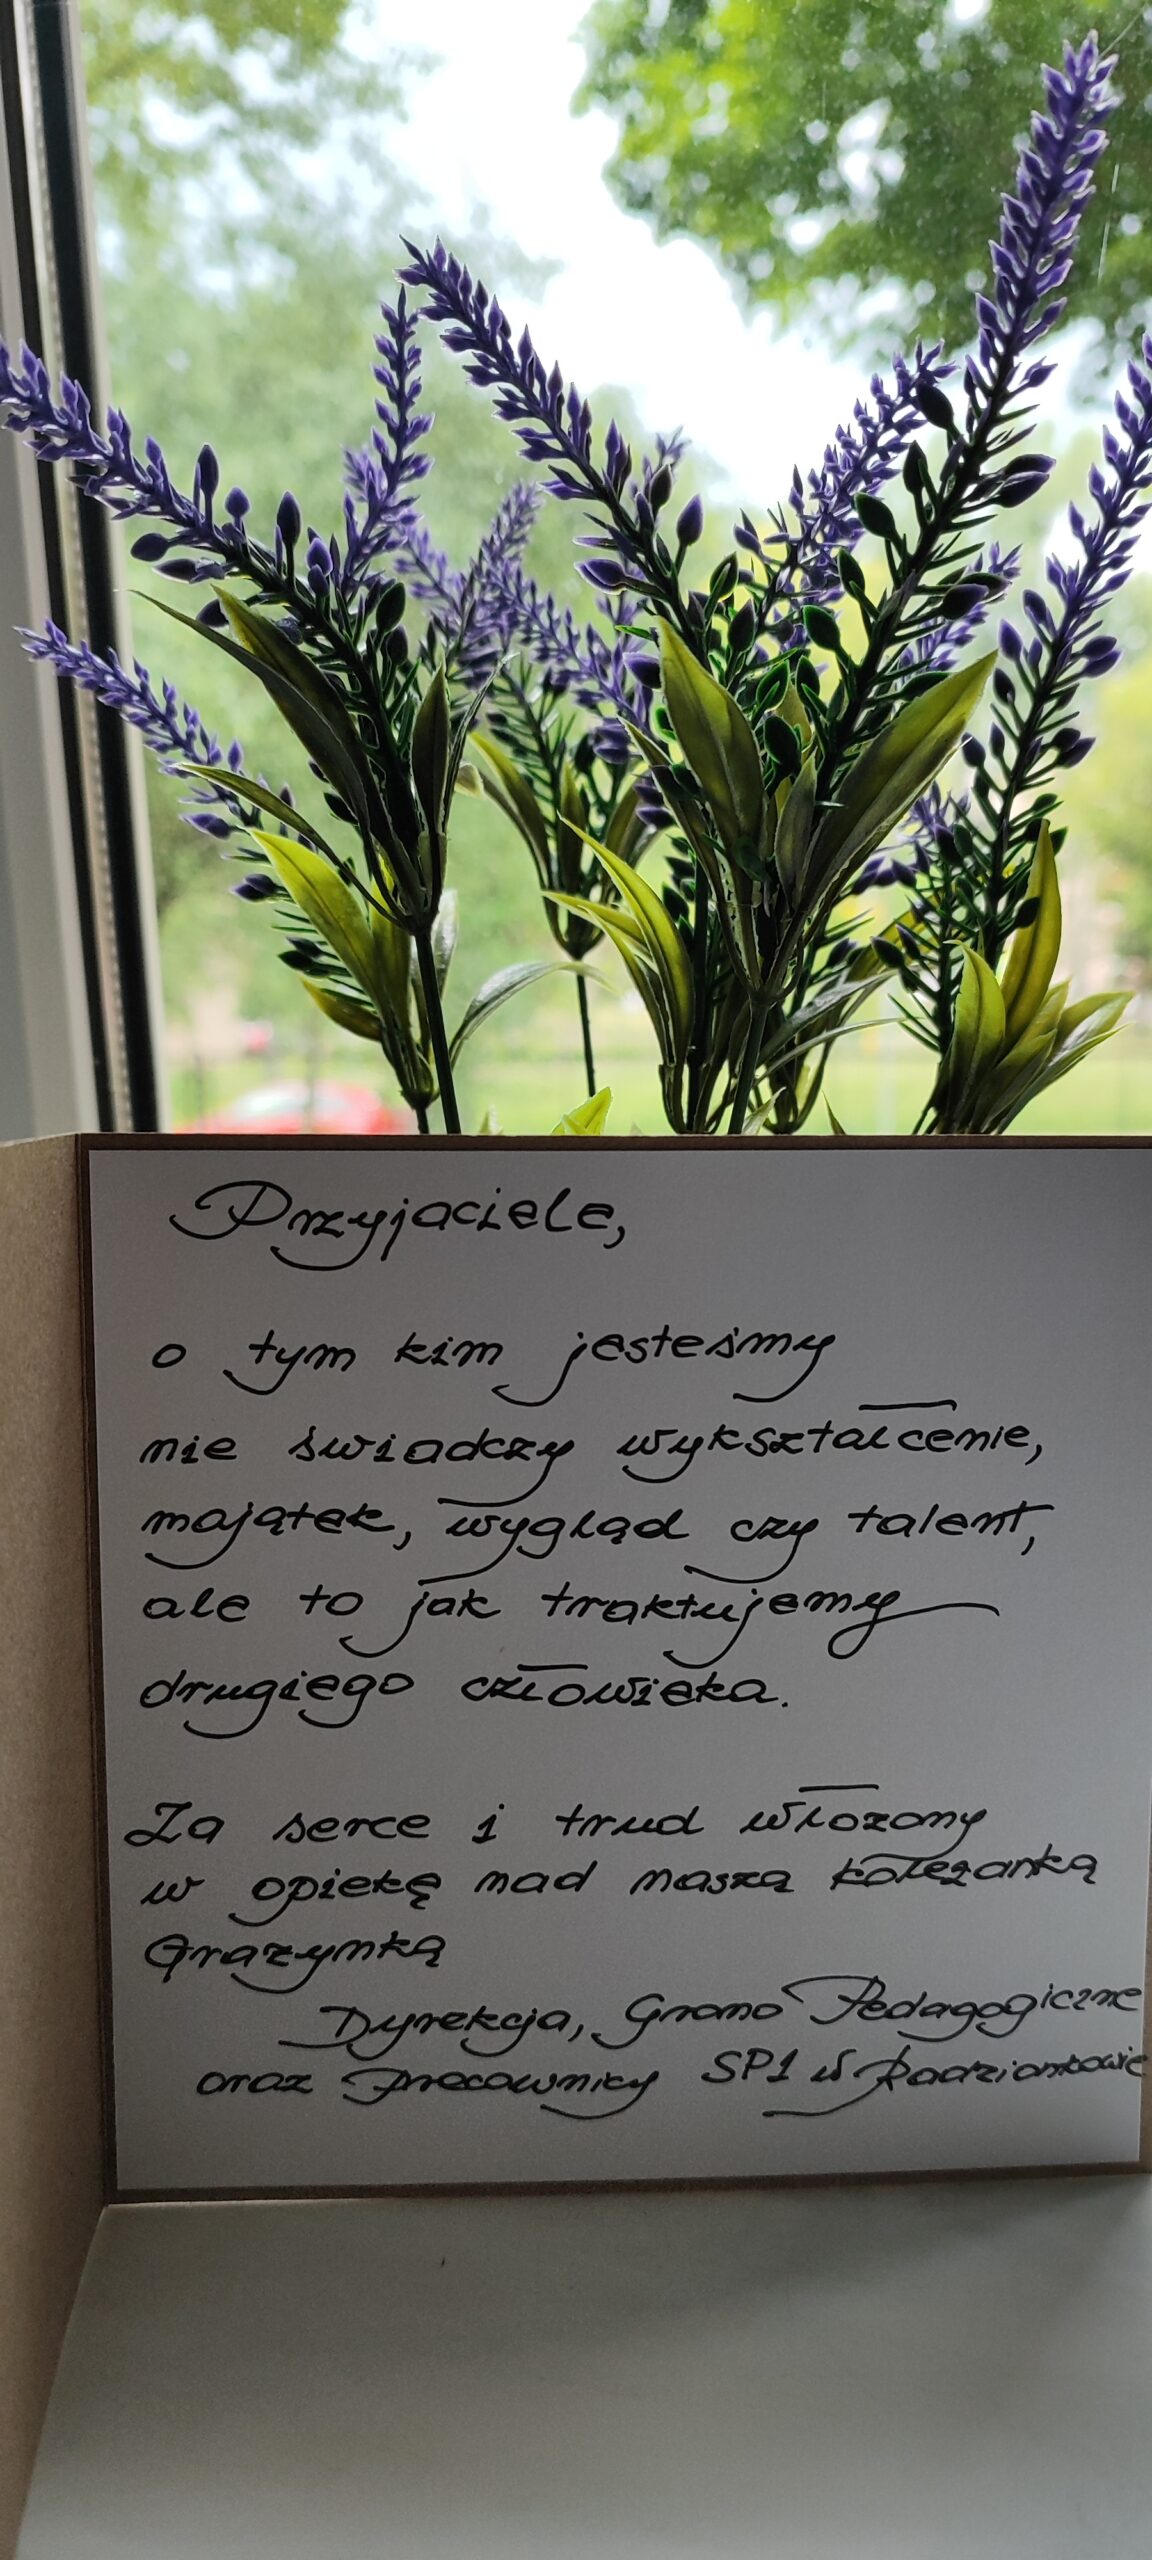 Przyjaciele,
o tym kim jesteśmy
nie świadczy wykształcenie,
majątek, wygląd czy talent,
ale to jak traktujemy
drugiego człowieka.
Za serce i trud włożony
w opiekę nad naszą koleżanką
Grażynką
Dyrekcja, Grono Pedagogiczne
oraz Pracownicy SP1 w Radzionkowie